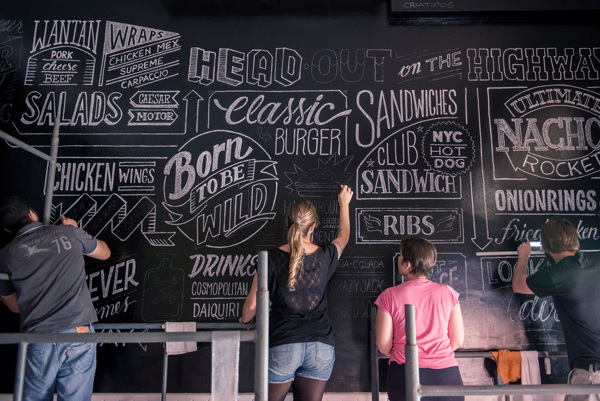 CRIATIPOS
WANTAN
PORK
cheese
BEEF
WRAPS
CHICKEN MEX
SUPREME
CARPACCIO
HEAD OUT on THE HIGHWAY
SALADS
CAESAR
MOTOR
Classic
BURGER
SANDWICHES
CLUB
SANDWICH
NYC
HOT
DOG
ULTIMATE
NACHO
ROCKET
CHICKEN WINGS
Born
TO BE
WILD
RIBS
ONIONRINGS
Fried
DRINKS
COSMOPOLITAN
DAIQUIRI
76